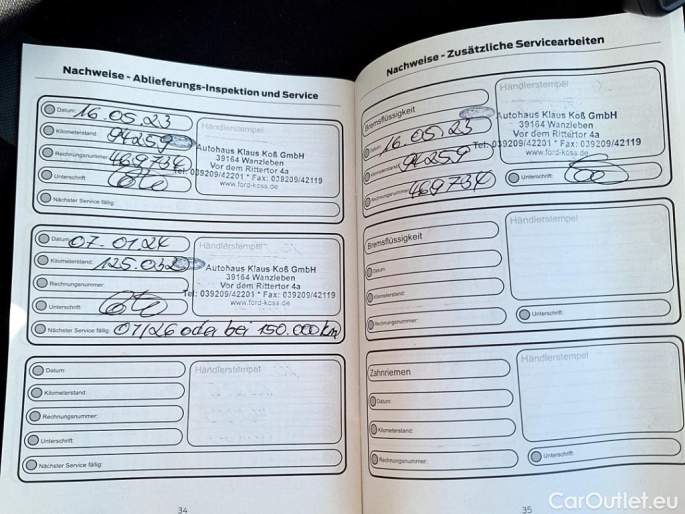 Nachweise - Ablieferungs-Inspektion und Service
Datum: 16.05.23
Kilometerstand: 94259
Rechnungsnummer: 469734
Unterschrift:
Nächster Service fällig:
Händlerstempel
Autohaus Klaus Koß GmbH
39164 Wanzleben
Vor dem Rittertor 4a
Tel: 039209/42201 * Fax: 039209/42119
www.ford-koss.de
Datum: 07.01.24
Kilometerstand: 125.032
Rechnungsnummer:
Unterschrift:
Nächster Service fällig: 01/26 oder bei 150.000km
Händlerstempel
Autohaus Klaus Koß GmbH
39164 Wanzleben
Vor dem Rittertor 4a
Tel: 039209/42201 * Fax: 039209/42119
www.ford-koss.de
Datum:
Kilometerstand:
Rechnungsnummer:
Unterschrift:
Nächster Service fällig:
Händlerstempel
34
Nachweise - Zusätzliche Servicearbeiten
Bremsflüssigkeit
Datum: 16.05.23
Kilometerstand: 94259
Rechnungsnummer: 469734
Händlerstempel
Autohaus Klaus Koß GmbH
39164 Wanzleben
Vor dem Rittertor 4a
Tel: 039209/42201 * Fax: 039209/42119
www.ford-koss.de
Unterschrift:
Bremsflüssigkeit
Datum:
Kilometerstand:
Rechnungsnummer:
Händlerstempel
Unterschrift:
Zahnriemen
Datum:
Kilometerstand:
Rechnungsnummer:
Händlerstempel
Unterschrift:
35
CarOutlet.eu